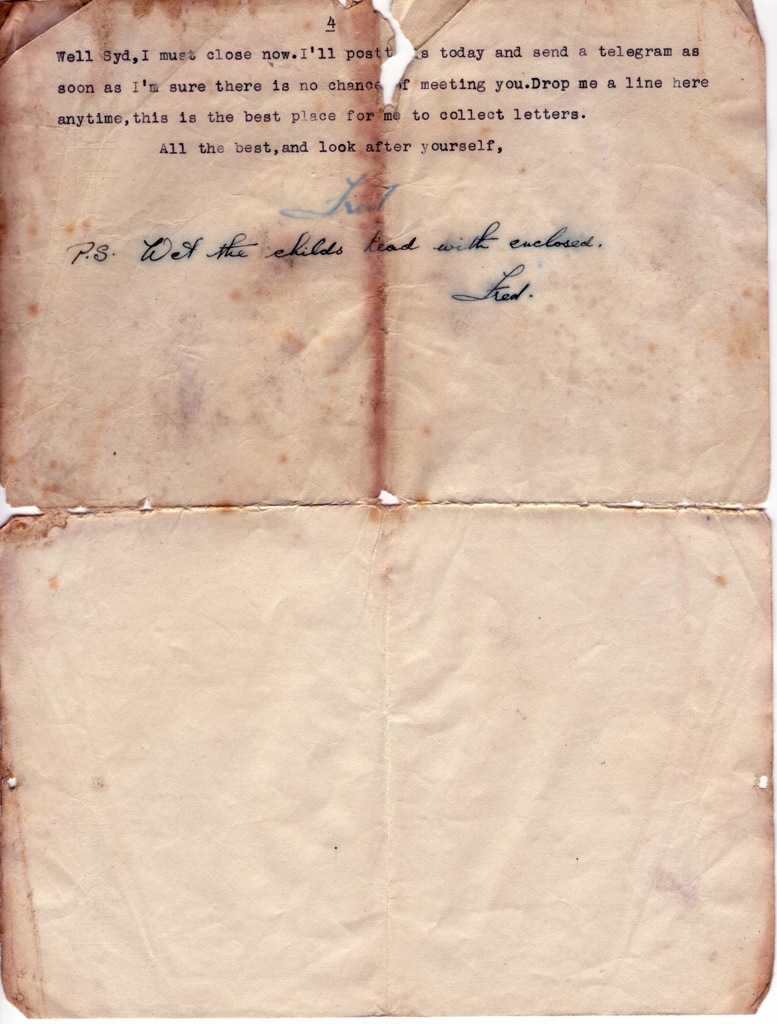 4
Well Syd,I must close now.I'll post t s today and send a telegram as
soon as I'm sure there is no chance of meeting you.Drop me a line here
anytime,this is the best place for me to collect letters.
All the best,and look after yourself,
Fred
P.S. Wet the childs head with enclosed.
Fred.